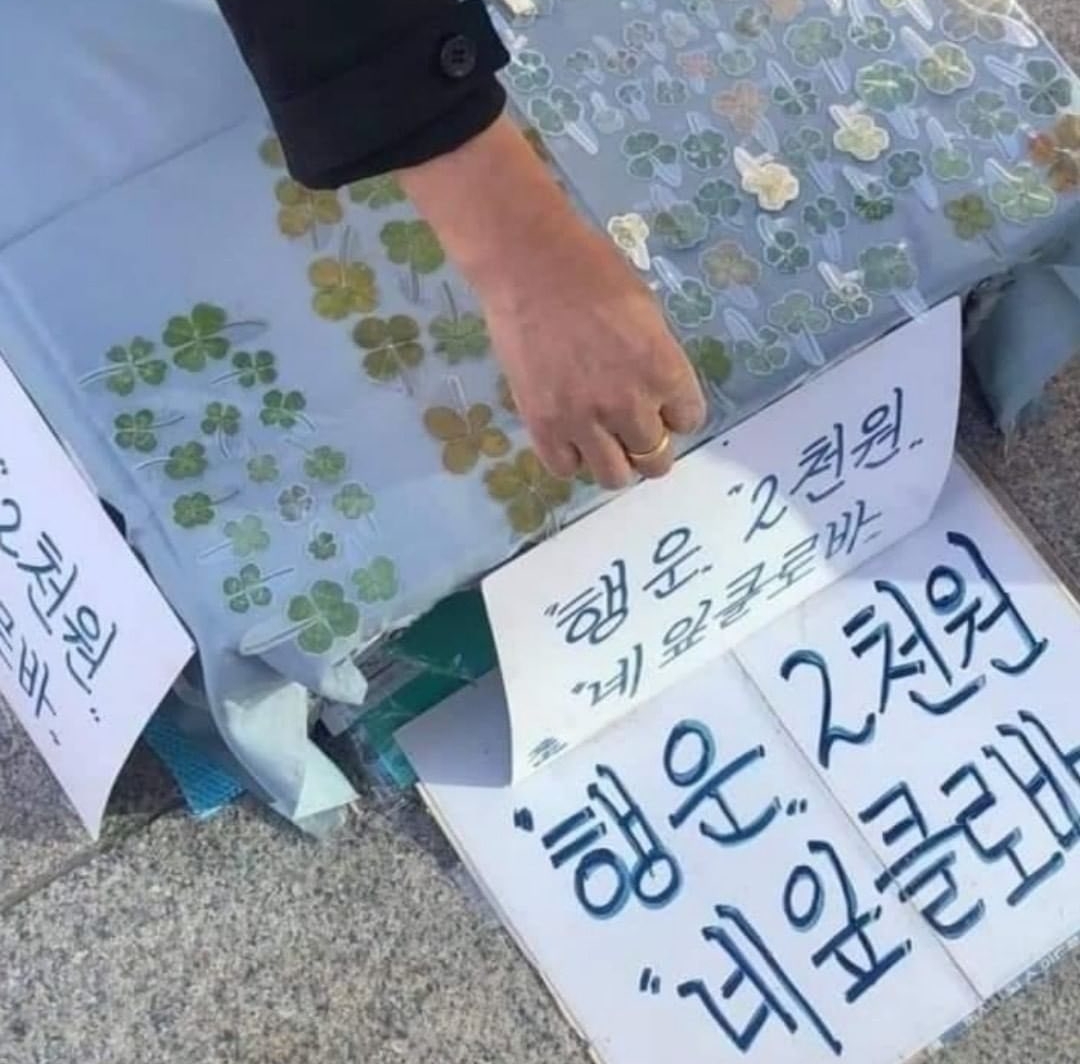 "2천원"
로바
"행운" "2천원"
"네잎클로바
"행운" 2천원
"네잎클로바